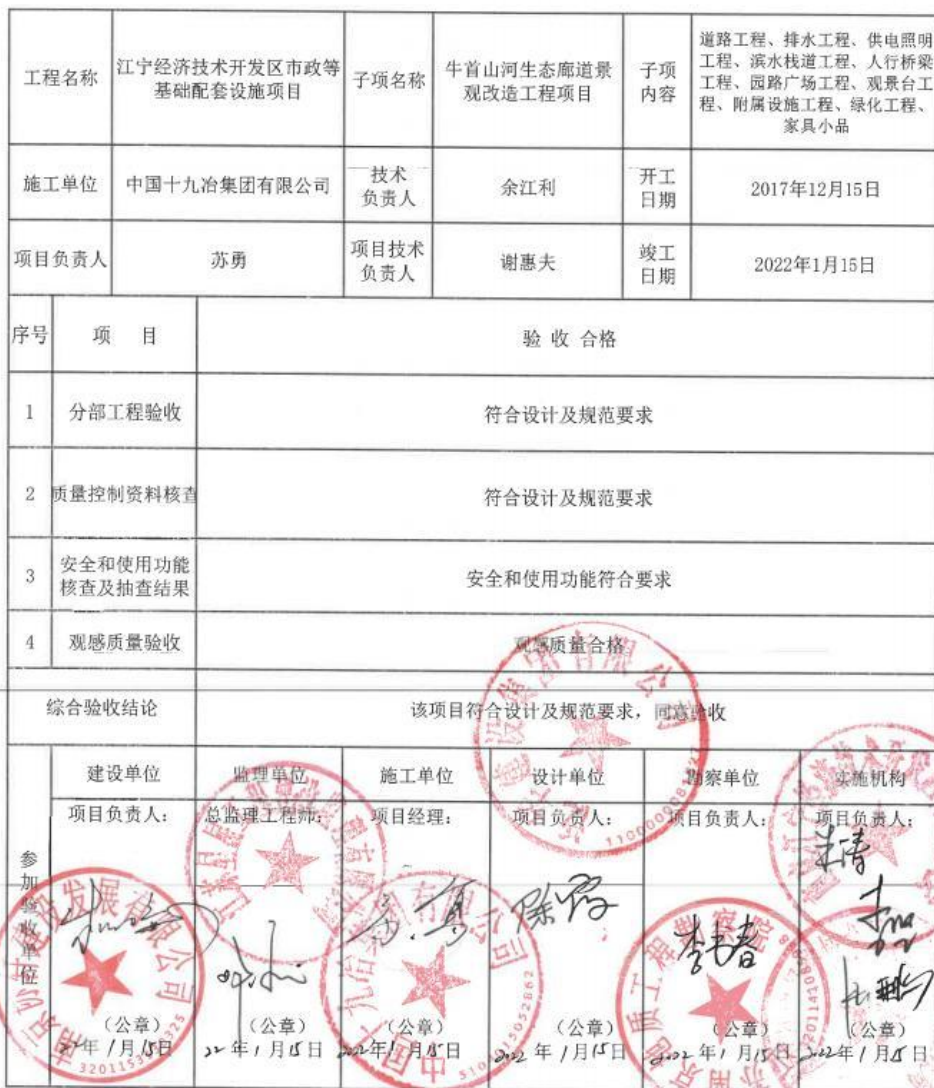 工程名称
江宁经济技术开发区市政等
基础配套设施项目
子项名称
牛首山河生态廊道景
观改造工程项目
子项
内容
道路工程、排水工程、供电照明
工程、滨水栈道工程、人行桥梁
工程、园路广场工程、观景台工
程、附属设施工程、绿化工程、
家具小品
施工单位
中国十九冶集团有限公司
技术
负责人
余江利
开工
日期
2017年12月15日
项目负责人
苏勇
项目技术
负责人
谢惠夫
竣工
日期
2022年1月15日
序号
项 目
验 收 合格
1
分部工程验收
符合设计及规范要求
2
质量控制资料核查
符合设计及规范要求
3
安全和使用功能
核查及抽查结果
安全和使用功能符合要求
4
观感质量验收
观感质量合格
综合验收结论
该项目符合设计及规范要求，同意验收
参加验收单位
建设单位
监理单位
施工单位
设计单位
勘察单位
实施机构
项目负责人：
总监理工程师：
项目经理：
项目负责人：
项目负责人：
项目负责人：
（公章）
（公章）
（公章）
（公章）
（公章）
年1月15日
22年1月15日
2022年1月15日
2022年1月15日
2022年1月15日
2022年1月15日